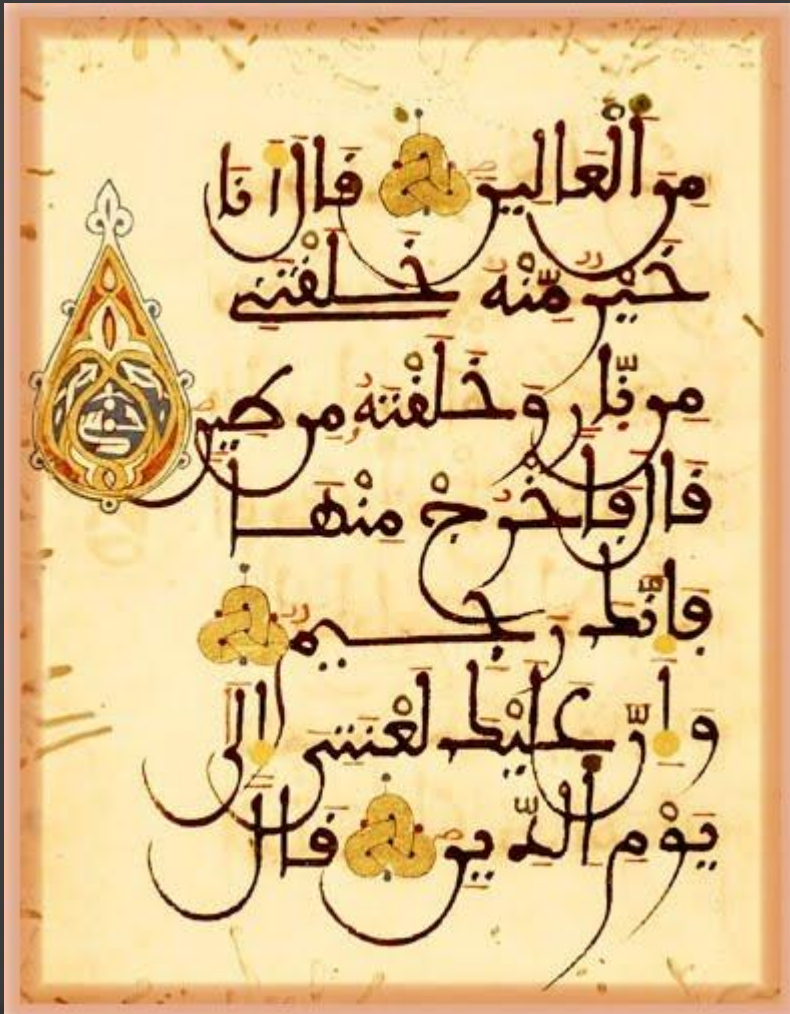 مِنَ اَ۬لْعَالِينَ قَالَ أَنَا
خَيْرٌ مِّنْهُ خَلَقْتَنِے
مِن نّ۪ارٍ وَخَلَقْتَهُۥ مِن طِينٍ
قَالَ فَاخْرُجْ مِنْهَا
فَإِنَّكَ رَجِيمٌ
وَإِنَّ عَلَيْكَ لَعْنَتِے إِلَىٰ
يَوْمِ اِ۬لدِّينِ قَالَ